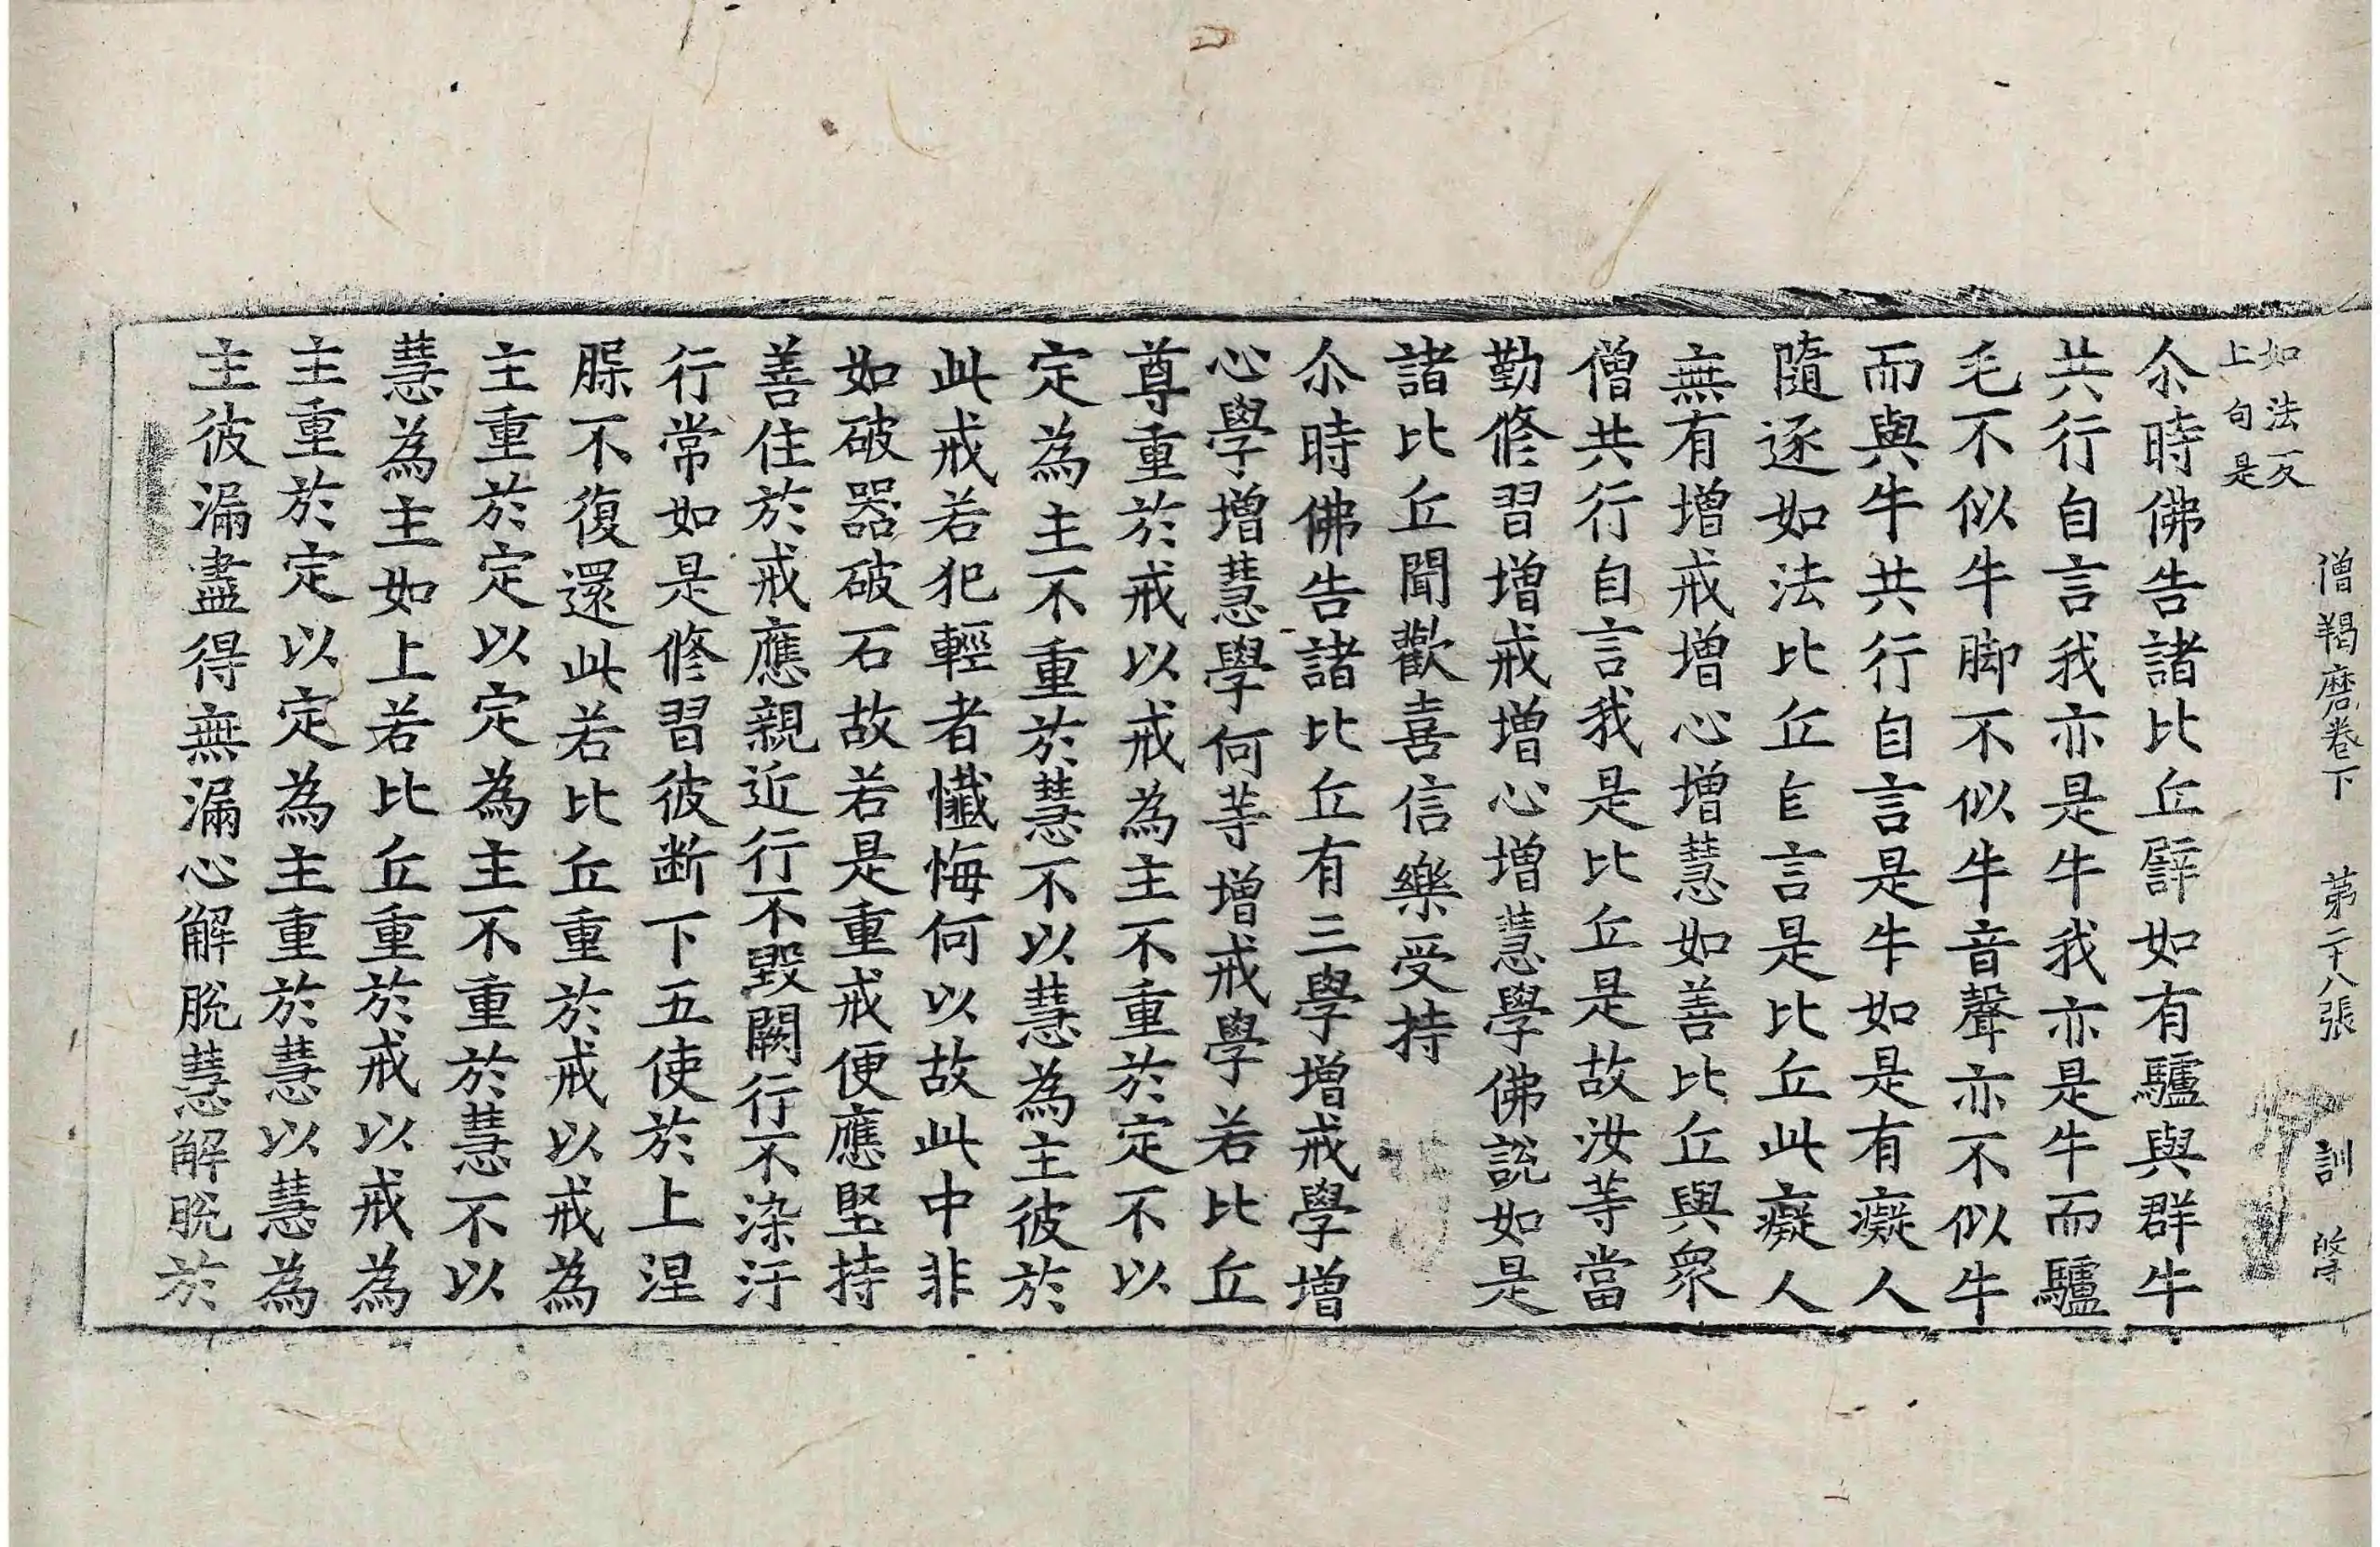 僧羯磨卷下 第二十八張 訓
如法反
上句是
尒時佛告諸比丘譬如有驢與群牛
共行自言我亦是牛我亦是牛而驢
毛不似牛脚不似牛音聲亦不似牛
而與牛共行自言是牛如是有癡人
隨逐如法比丘自言是比丘此癡人
無有增戒增心增慧如善比丘與衆
僧共行自言我是比丘是故汝等當
勤修習增戒增心增慧學佛說如是
諸比丘聞歡喜信樂受持
尒時佛告諸比丘有三學增戒學增
心學增慧學何等增戒學若比丘
尊重於戒以戒為主不重於定不以
定為主不重於慧不以慧為主彼於
此戒若犯輕者懺悔何以故此中非
如破器破石故若是重戒便應堅持
善住於戒應親近行不毀闕行不染汙
行常如是修習彼斷下五使於上涅
𦖠不復還此若比丘重於戒以戒為
主重於定以定為主不重於慧不以
慧為主如上若比丘重於戒以戒為
主重於定以定為主重於慧以慧為
主彼漏盡得無漏心解脫慧解脫於